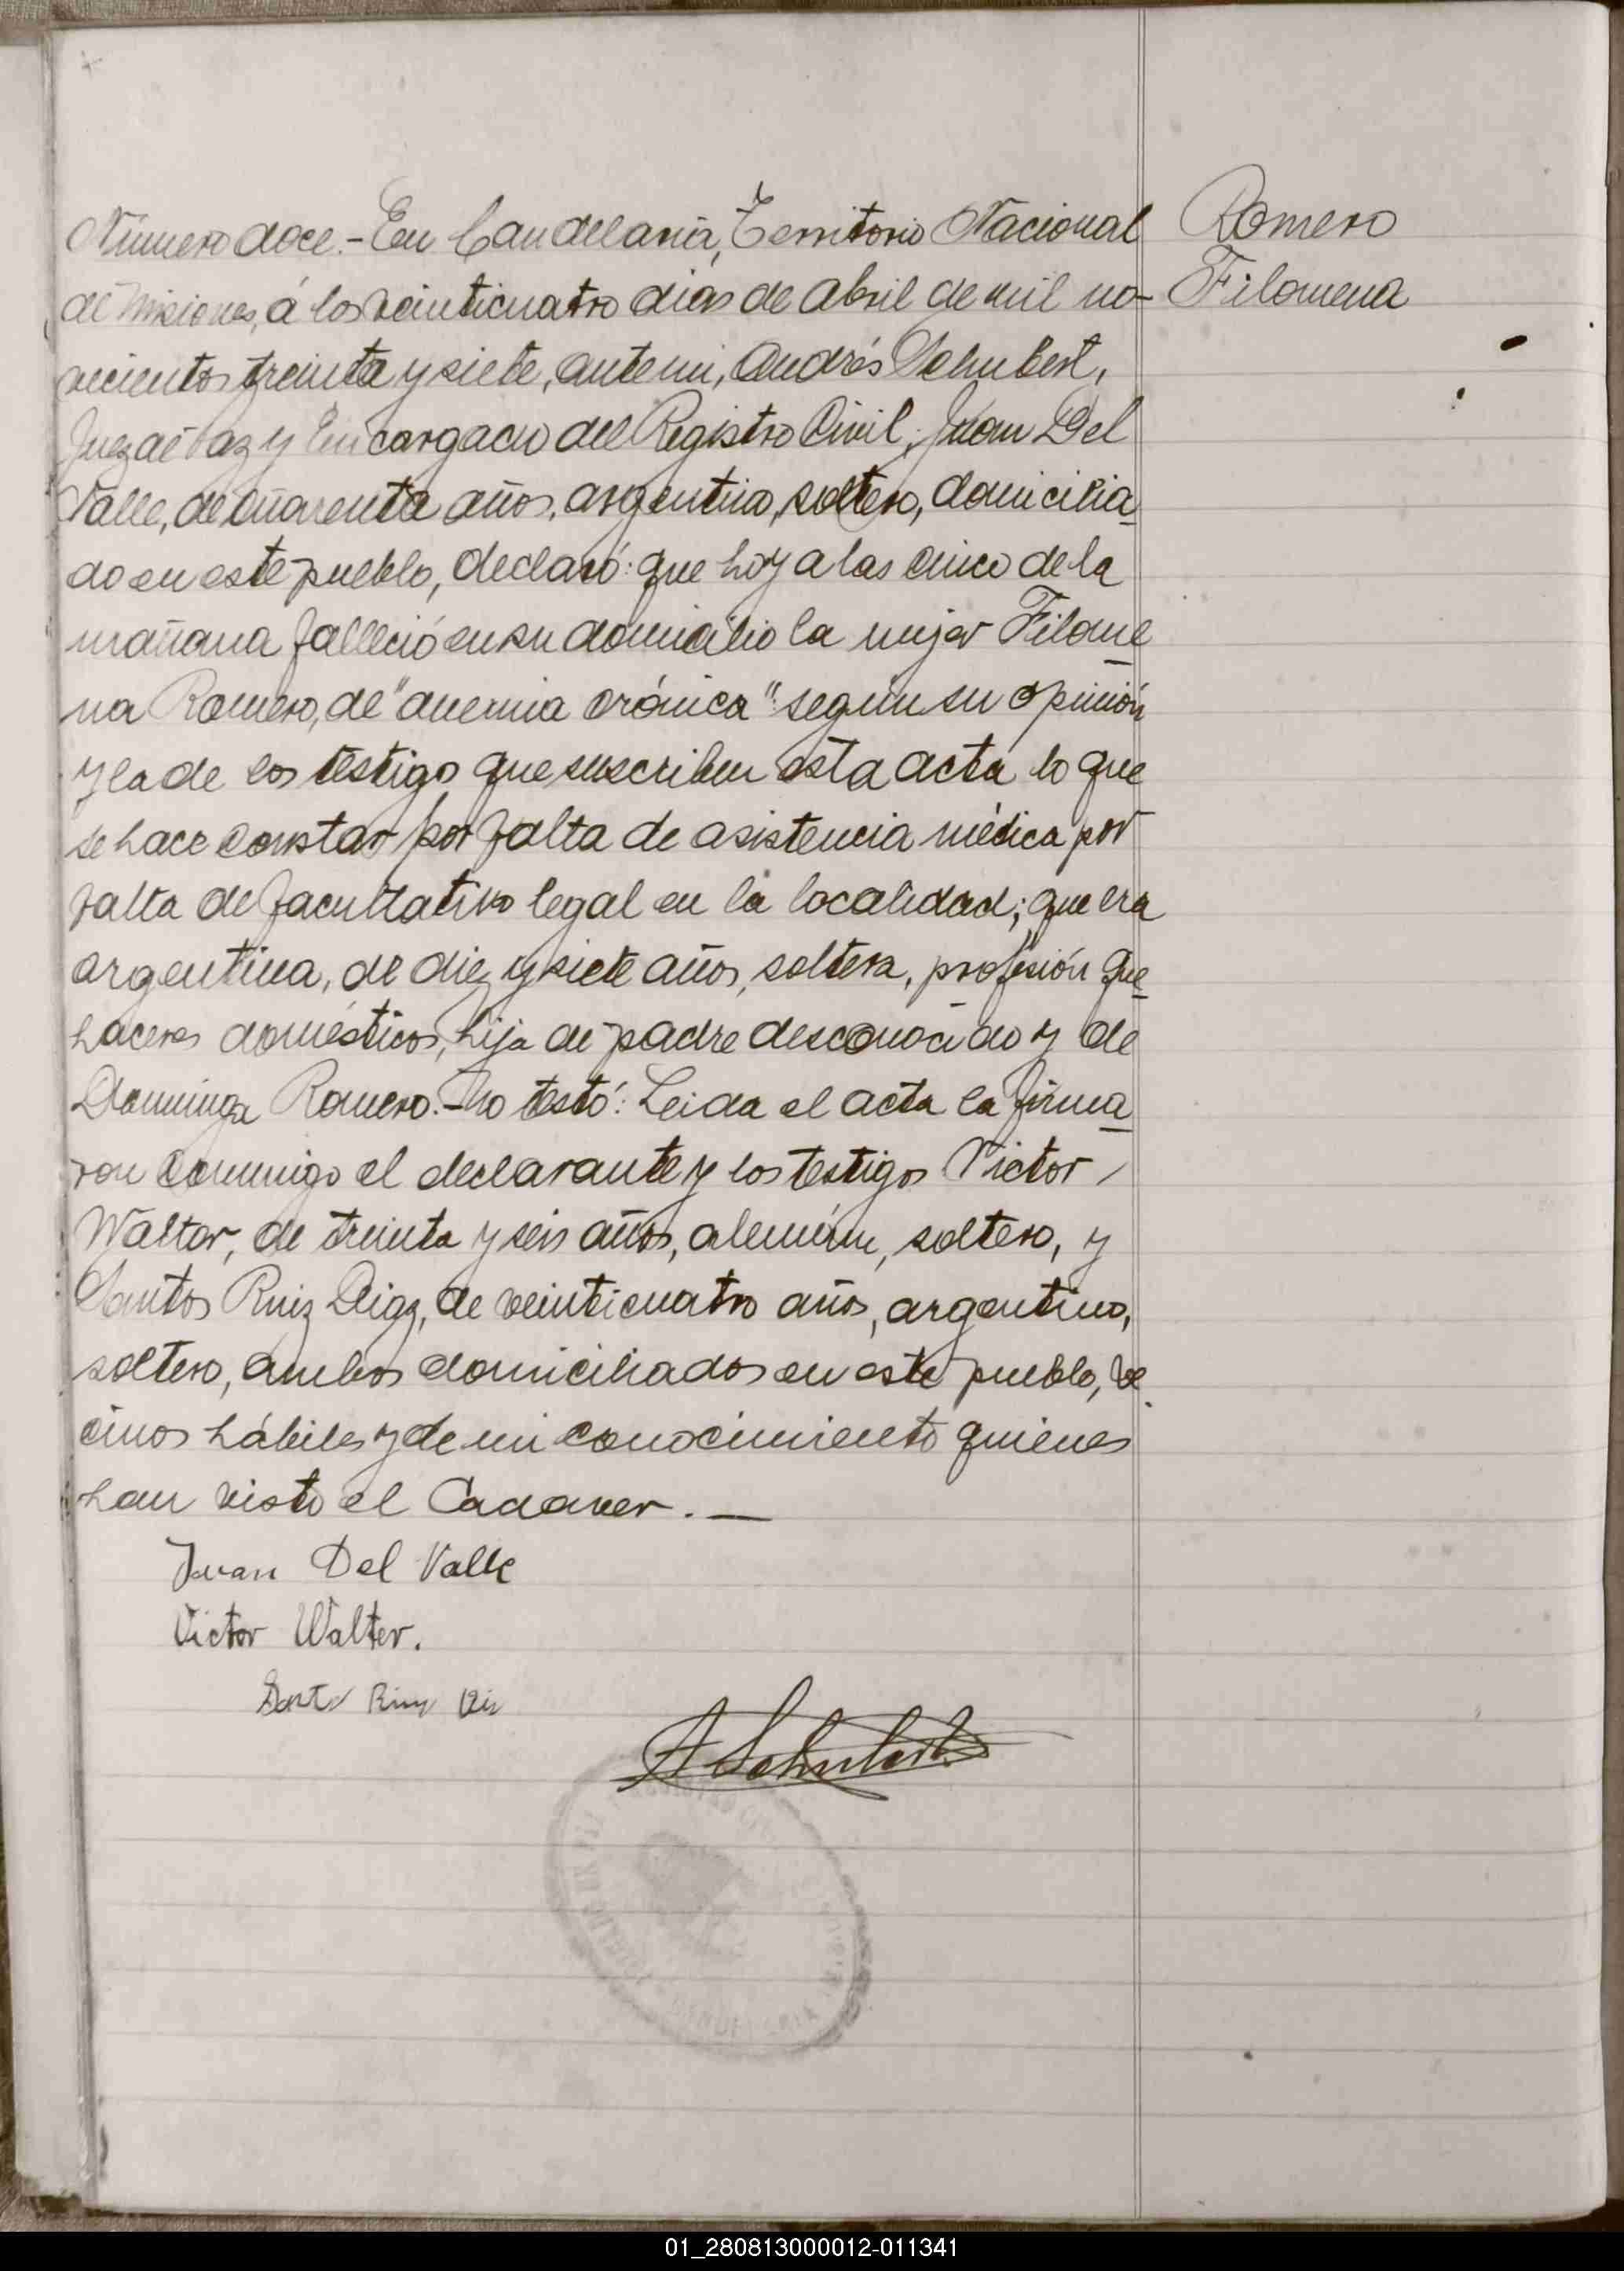 Número doce.- En Candelaria, Territorio Nacional
de Misiones, á los veinticuatro dias de Abril de mil no-
vecientos treinta y siete, ante mi, Andrés Schubert,
Juez de Paz y Encargado del Registro Civil, Juan Del
Valle, de cuarenta años, argentino, soltero, domicilia
do en este pueblo, declaró: que hoy a las cinco de la
mañana falleció en su domicilio la mujer Filome
na Romero, de "anemia crónica" según su opinión
y la de los testigos que suscriben esta acta lo que
se hace constar por falta de asistencia médica por
falta de facultativo legal en la localidad; que era
argentina, de diez y siete años, soltera, profesión que
haceres domésticos, hija de padre desconocido y de
Dominga Romero.- No testó: Leida el acta la firma
ron conmigo el declarante y los testigos Victor
Walter, de treinta y seis años, alemán, soltero, y
Santos Ruiz Diaz, de veinticuatro años, argentino,
soltero, ambos domiciliados en este pueblo, ve
cinos hábiles y de mi conocimiento quienes
han visto el Cadaver. —
Juan Del Valle
Victor Walter.
A Schubert
Romero
Filomena
01_280813000012-011341